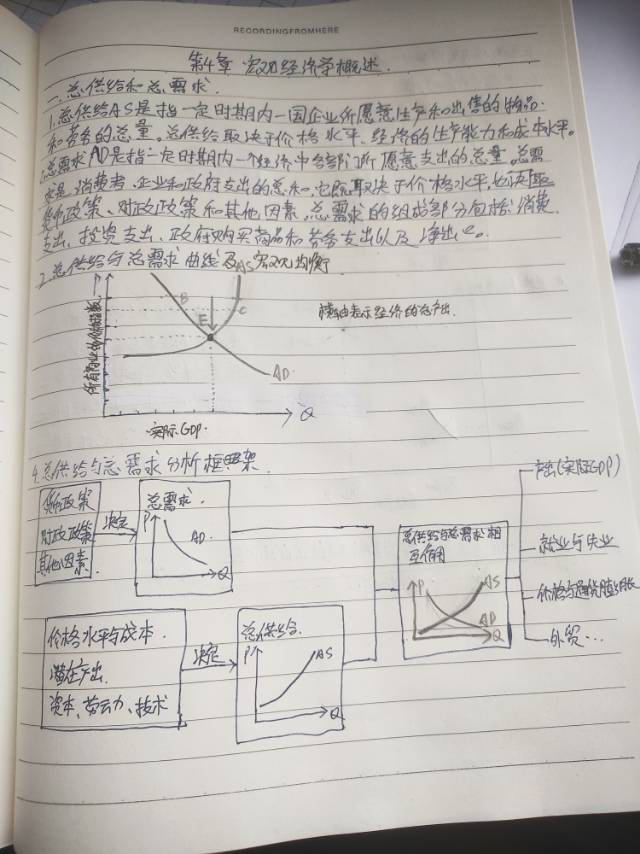 RECORDINGFROMHERE
第4章 宏观经济学概述.
一. 总供给和总需求.
1.总供给AS是指一定时期内一国企业所愿意生产和出售的物品
和劳务的总量。总供给取决于价格水平、经济的生产能力和成本水平。
总需求AD是指一定时期内一个经济中各部门所愿意支出的总量。总需
求是消费者、企业和政府支出的总和,它既取决于价格水平,也取
货币政策、财政政策和其他因素。总需求的组成部分包括:消费
支出、投资支出、政府购买商品和劳务支出以及净出口。
2.总供给与总需求曲线及宏观均衡
AS
B
C
E
横轴表示经济的总产出.
AD
Q
实际GDP.
4.总供给与总需求分析框架.
产出(实际GDP)
货币政策
财政政策
其他因素.
决定
总需求.
P
AD.
Q
总供给与总需求相
互作用
P
AS
AD
Q
就业与失业
价格与通货膨胀
外贸...
价格水平与成本.
潜在产出.
资本、劳动力、技术
决定
总供给.
P
AS
Q